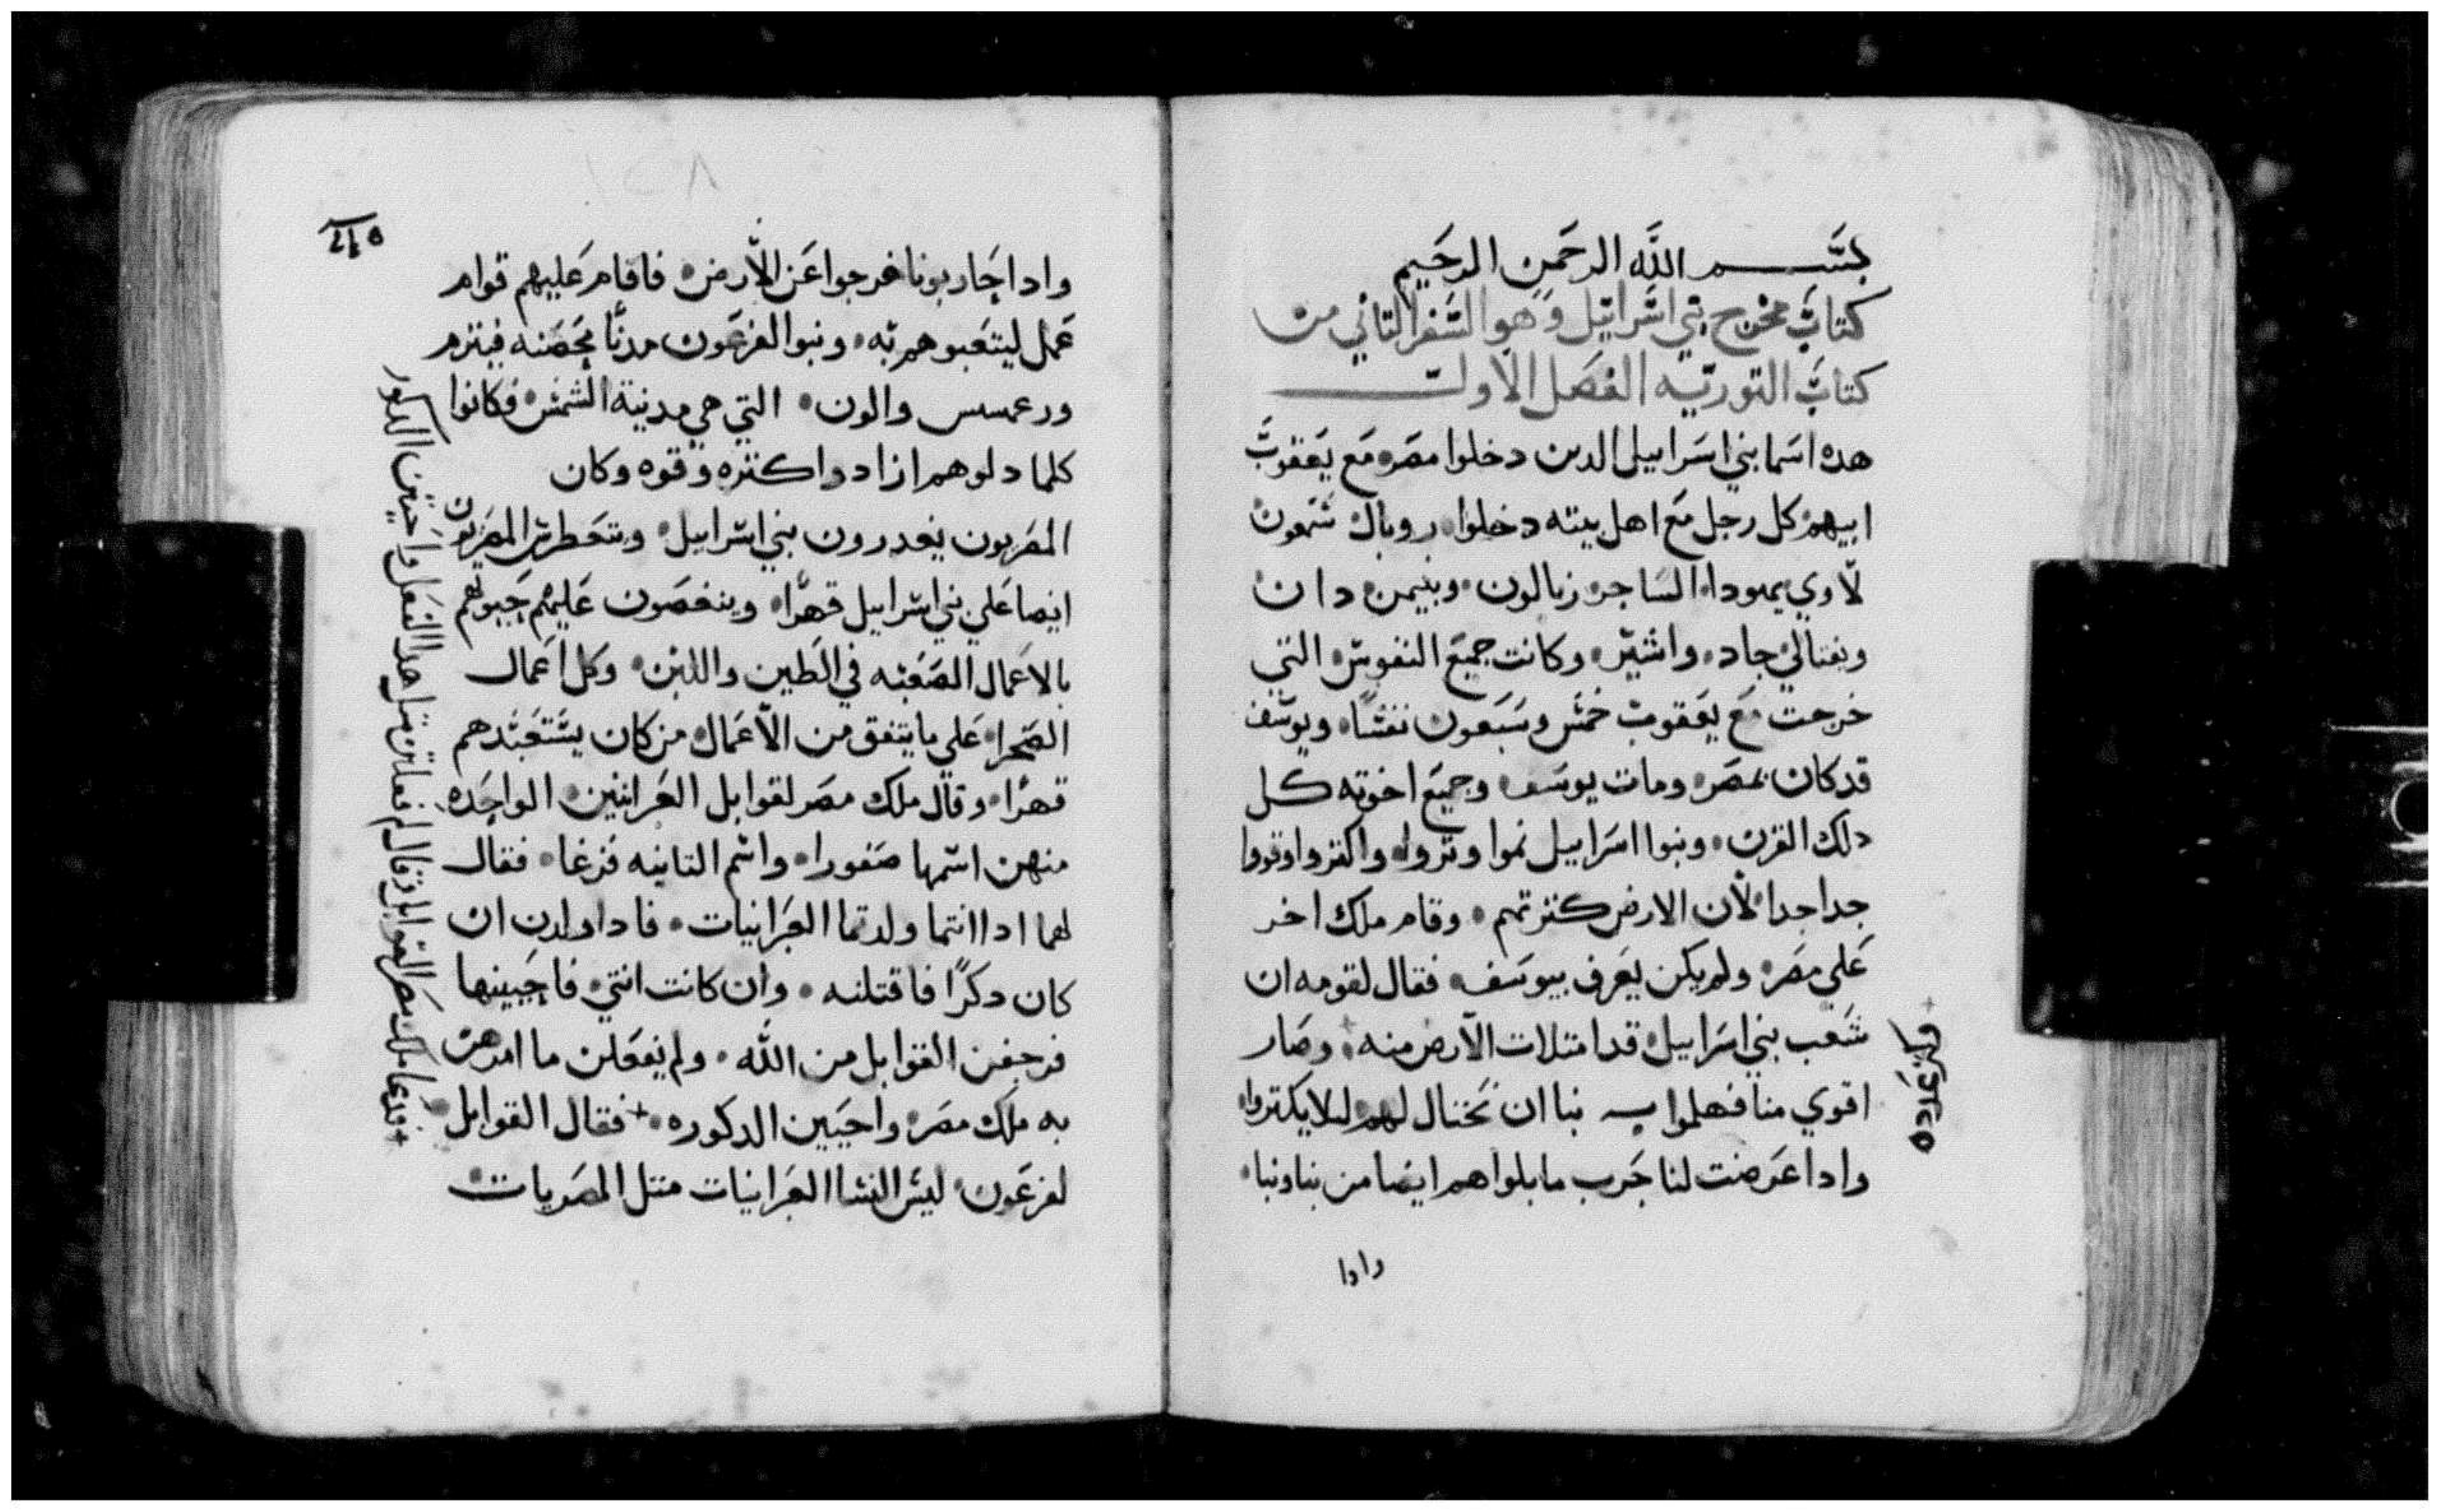 بسم الله الرحمن الرحيم
كتاب مخرج بني اسرائيل وهو السفر التاني من
كتاب التوريه الفصل الاول
هده اسما بني اسراييل الدين دخلوا مصر مع يعقوب
ابيهم كل رجل مع اهل بيته دخلوا روبال شمعون
لاوي يهودا الساجر زبالون وبنيمن دان
ونفتالي جاد واشير وكانت جميع النفوس التي
خرجت مع يعقوب خمس وسبعون نفسا ويوسف
قد كان بمصر ومات يوسف وجميع اخوته كل
دلك القرن وبنوا اسراييل نموا وتروا واكتروا وقووا
جدا جدا لان الارض كترتهم وقام ملك اخر
علي مصر ولم يكن يعرف بيوسف فقال لقومه ان
شعب بني اسراييل قد امتلات الارض منه وصار
اقوي منا فهلموا بنا ان نحتال لهم ليلا يكتروا
وادا عرضت لنا حرب مابلوا هم ايضا من بناونبا
وادا
وادا حاربونا خرجوا عن الارض فاقام عليهم قوام
عمل ليتعبوهم به وبنوا لفرعون مدنا محصنه فيتزم
ورعمسس والون التي هي مدينة الشمس فكانوا
كلما دلوهم ازادوا كتره وقوه وكان
المصريون يغدرون بني اسراييل وتتخطرس المصريون
ايضا علي بني اسراييل قهرا وينغصون عليهم حيوتهم
بالاعمال الصعبه في الطين واللبن وكل اعمال
الصحرا علي ما يتفق من الاعمال من كان يستعبدهم
قهرا وقال ملك مصر لقوابل العبرانيين الواحده
منهن اسمها صفورا واسم التانيه فزغا فقال
لهما ادا انتما ولدتما العبرانيات فادا ولدن ان
كان دكرا فاقتلنه وان كانت انتي فاحيينها
فرجفن القوابل من الله ولم يفعلن ما امرهن
به ملك مصر واحيين الدكوره + فقال القوابل
لفرعون ليس النسا العبرانيات متل المصريات
+ فدعا ملك مصر القوابل وقال لم فعلتن متل هدا الفعل واحيتين الدكور